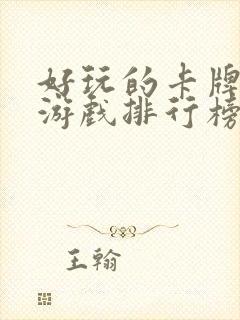 好玩的卡牌
游戏排行榜
王翰